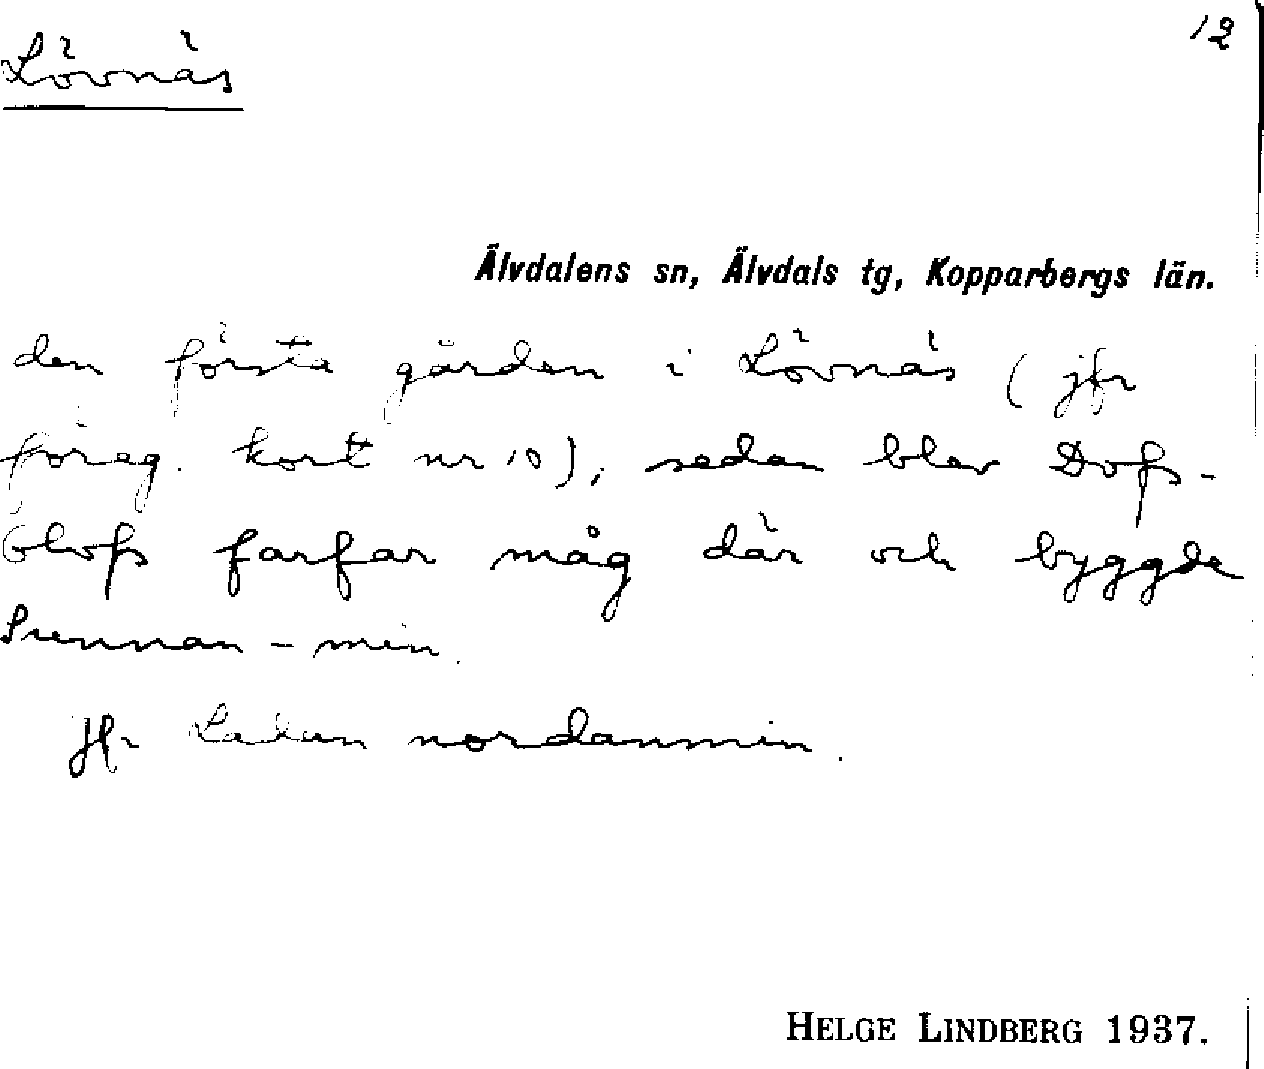 12
Lövnäs
Älvdalens sn, Älvdals tg, Kopparbergs län.
den första gården i Lövnäs (jfr
föreg. kort nr 10), sedan blev Dofs-
Olofs farfar måg där och byggde
Sunnan-min.
Jfr nordanmin.
HELGE LINDBERG 1937.